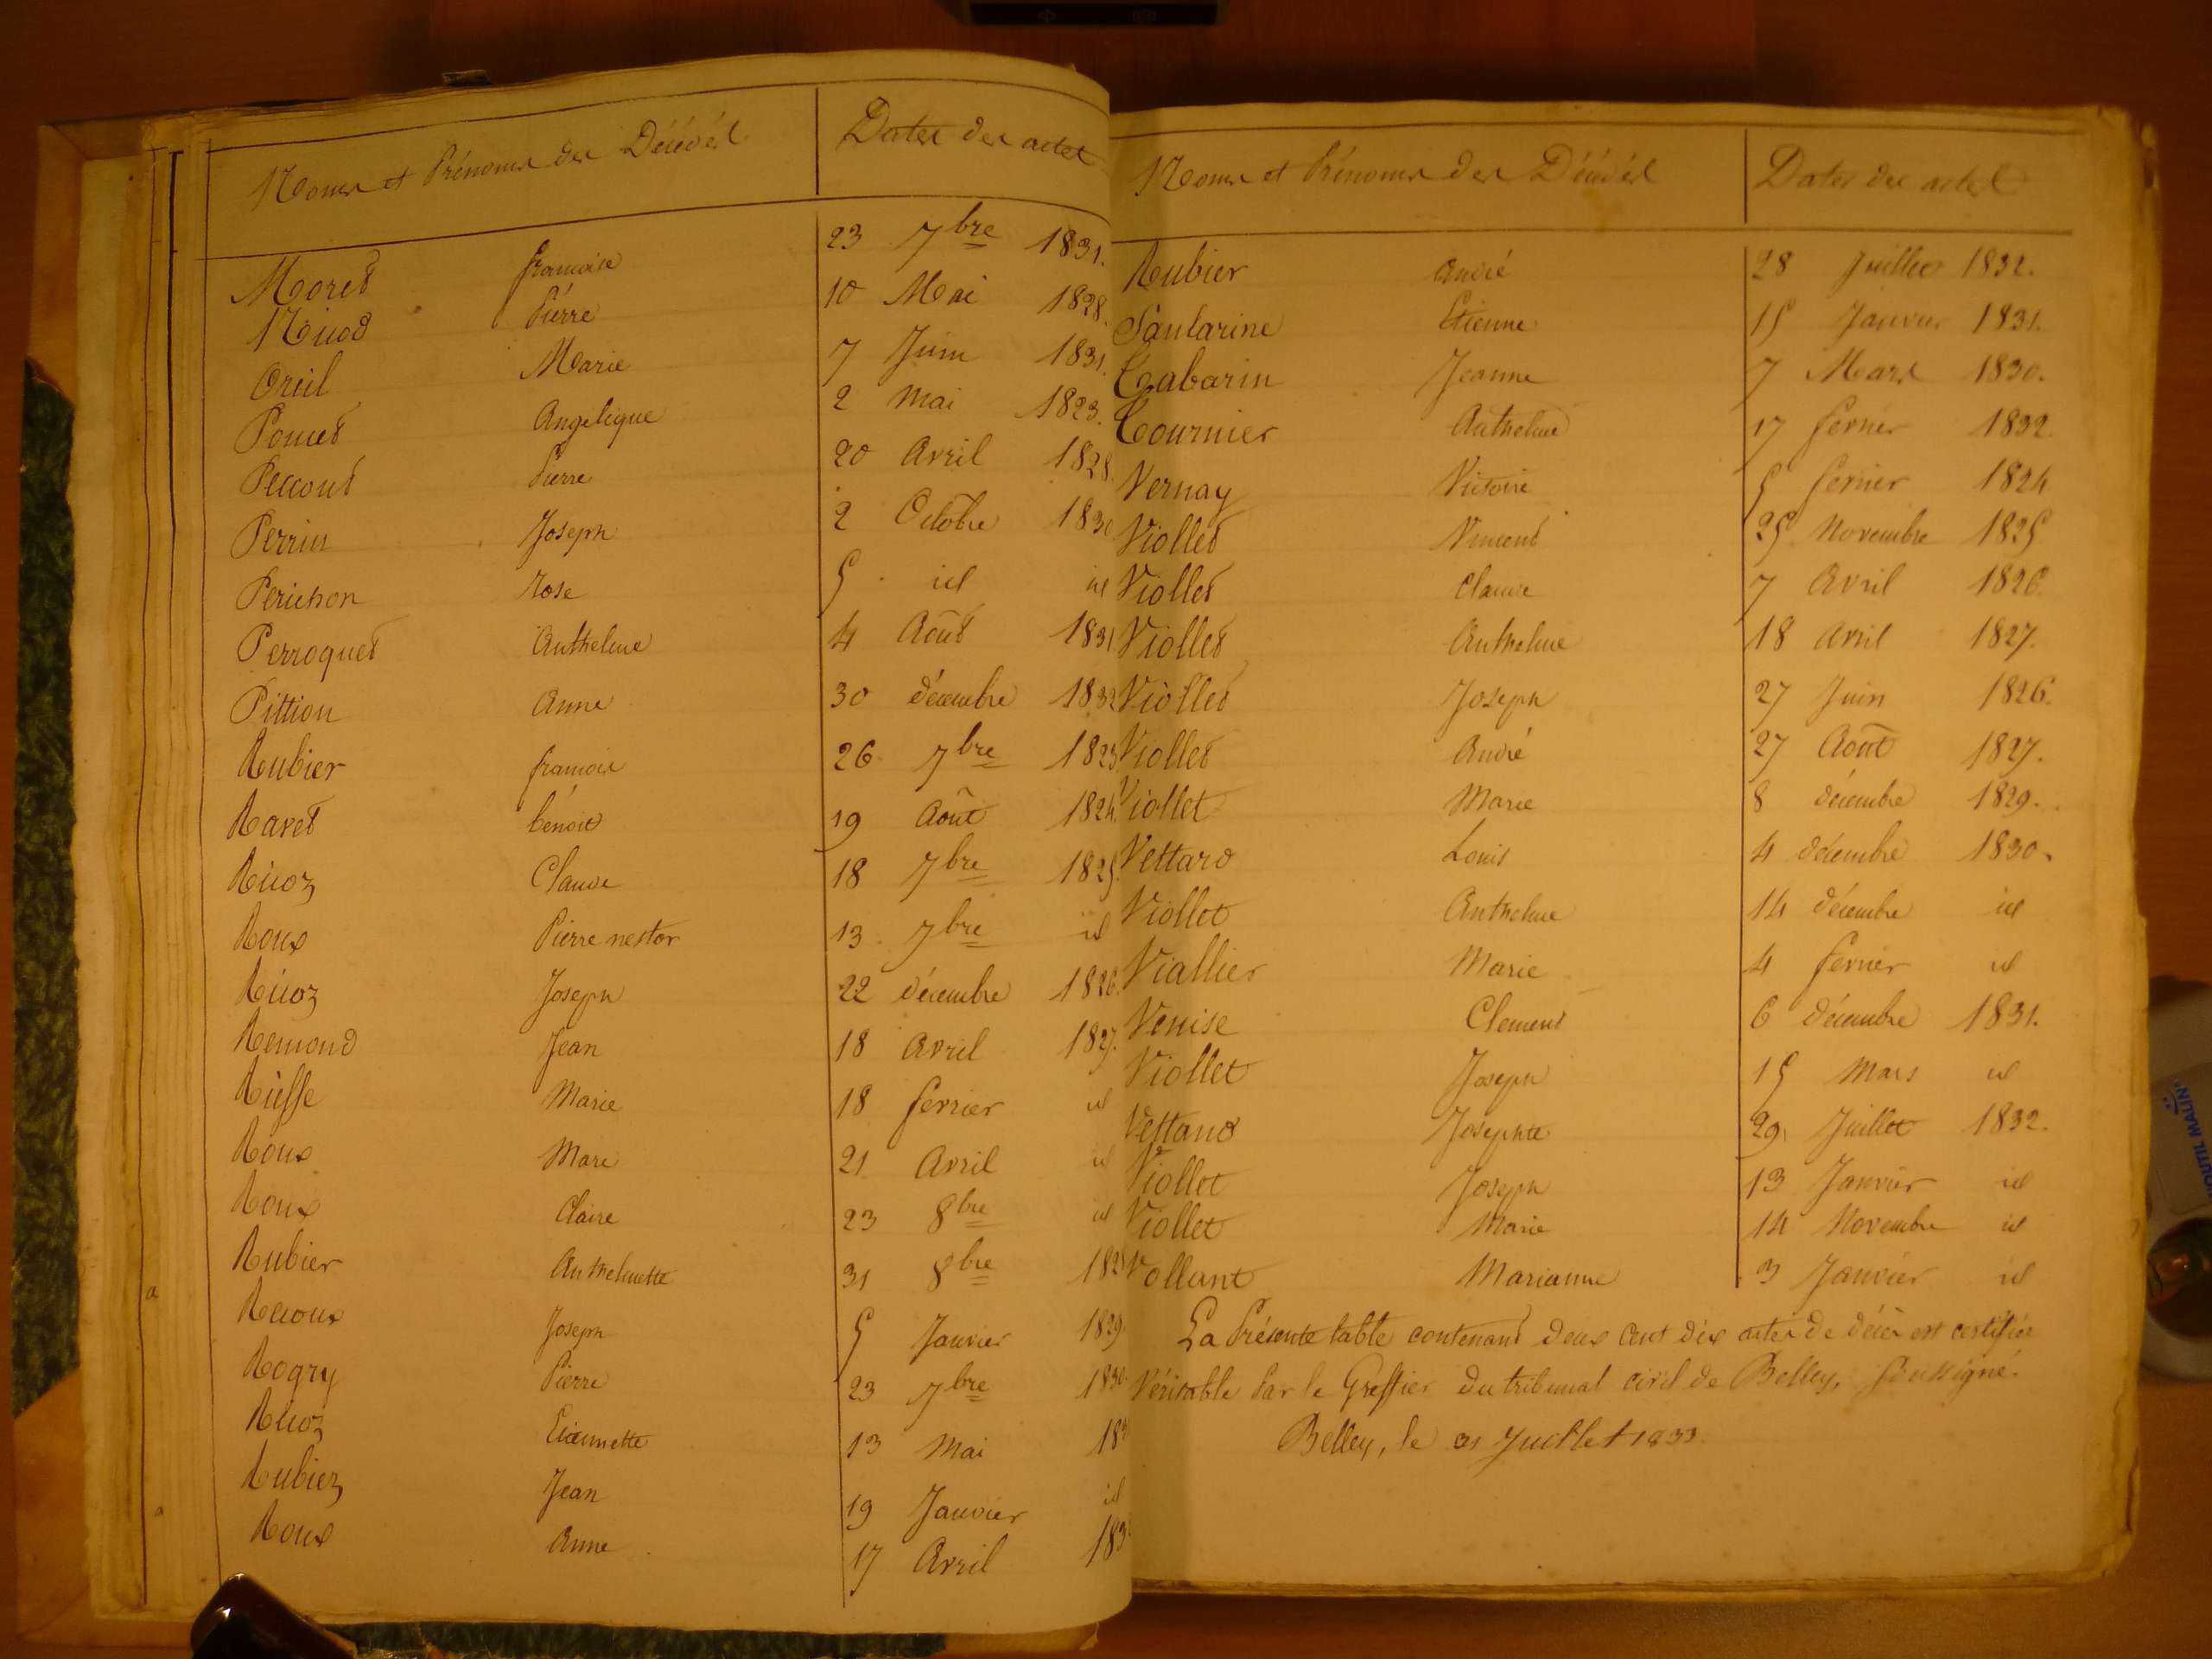 Noms et Prénoms des Décédés Dates des actes
Moret françoise 23 7bre 1831.
Nicod Pierre 10 Mai 1828.
Oreil Marie 7 Juin 1831.
Poncet Angelique 2 mai 1823.
Peccoud Pierre 20 Avril 1828.
Perrin Joseph 2 Octobre 1830
Perichon Rose 5 id id
Perroquet Anthelme 4 Août 1831
Pittion Anne 30 décembre 1832
Rubier françoise 26 7bre 1823
Ravet benoit 19 Août 1824.
Ricoz Claude 18 7bre 1825.
Roux Pierre nestor 13 7bre id
Ricoz Joseph 22 décembre 1826.
Remond Jean 18 Avril 1827.
Rieffe Marie 18 fevrier id
Roux Marie 21 Avril id
Roux Claire 23 8bre id
Rubier Anthelmette 31 8bre 182
Recoux Joseph 5 Janvier 1829.
Rogry Pierre 23 7bre 1830.
Ricoz Etiennette 13 Mai 183
Rubier Jean 19 Janvier id
Roux Anne 17 Avril 183
Noms et Prénoms des Décédés Dates des actes
Rubier André 28 Juillet 1832.
Santarine Etienne 15 Janvier 1831.
Tabarin Jeanne 7 Mars 1830.
Tournier Anthelme 17 fevrier 1832.
Vernay Victoire 5 fevrier 1824
Viollet Vincent 25 Novembre 1825
Viollet Claude 7 Avril 1826.
Viollet Anthelme 18 Avril 1827.
Viollet Joseph 27 Juin 1826.
Viollet André 27 Août 1827.
Viollet Marie 8 décembre 1829.
Vettard Louis 4 décembre 1830.
Viollet Anthelme 14 décembre id
Viallier Marie 4 fevrier id
Venise Clement 6 décembre 1831.
Viollet Joseph 15 Mars id
Vettard Josephte 29 Juillet 1832.
Viollet Joseph 13 Janvier id
Viollet Marie 14 Novembre id
Vollant Marianne 3 Janvier id
La Présente table contenant deux Cent dix actes de décès est certifiée
Véritable Par le Greffier du tribunal civil de Belley, Soussigné.
Belley, le 31 Juillet 1833.
OUTIL MALIN